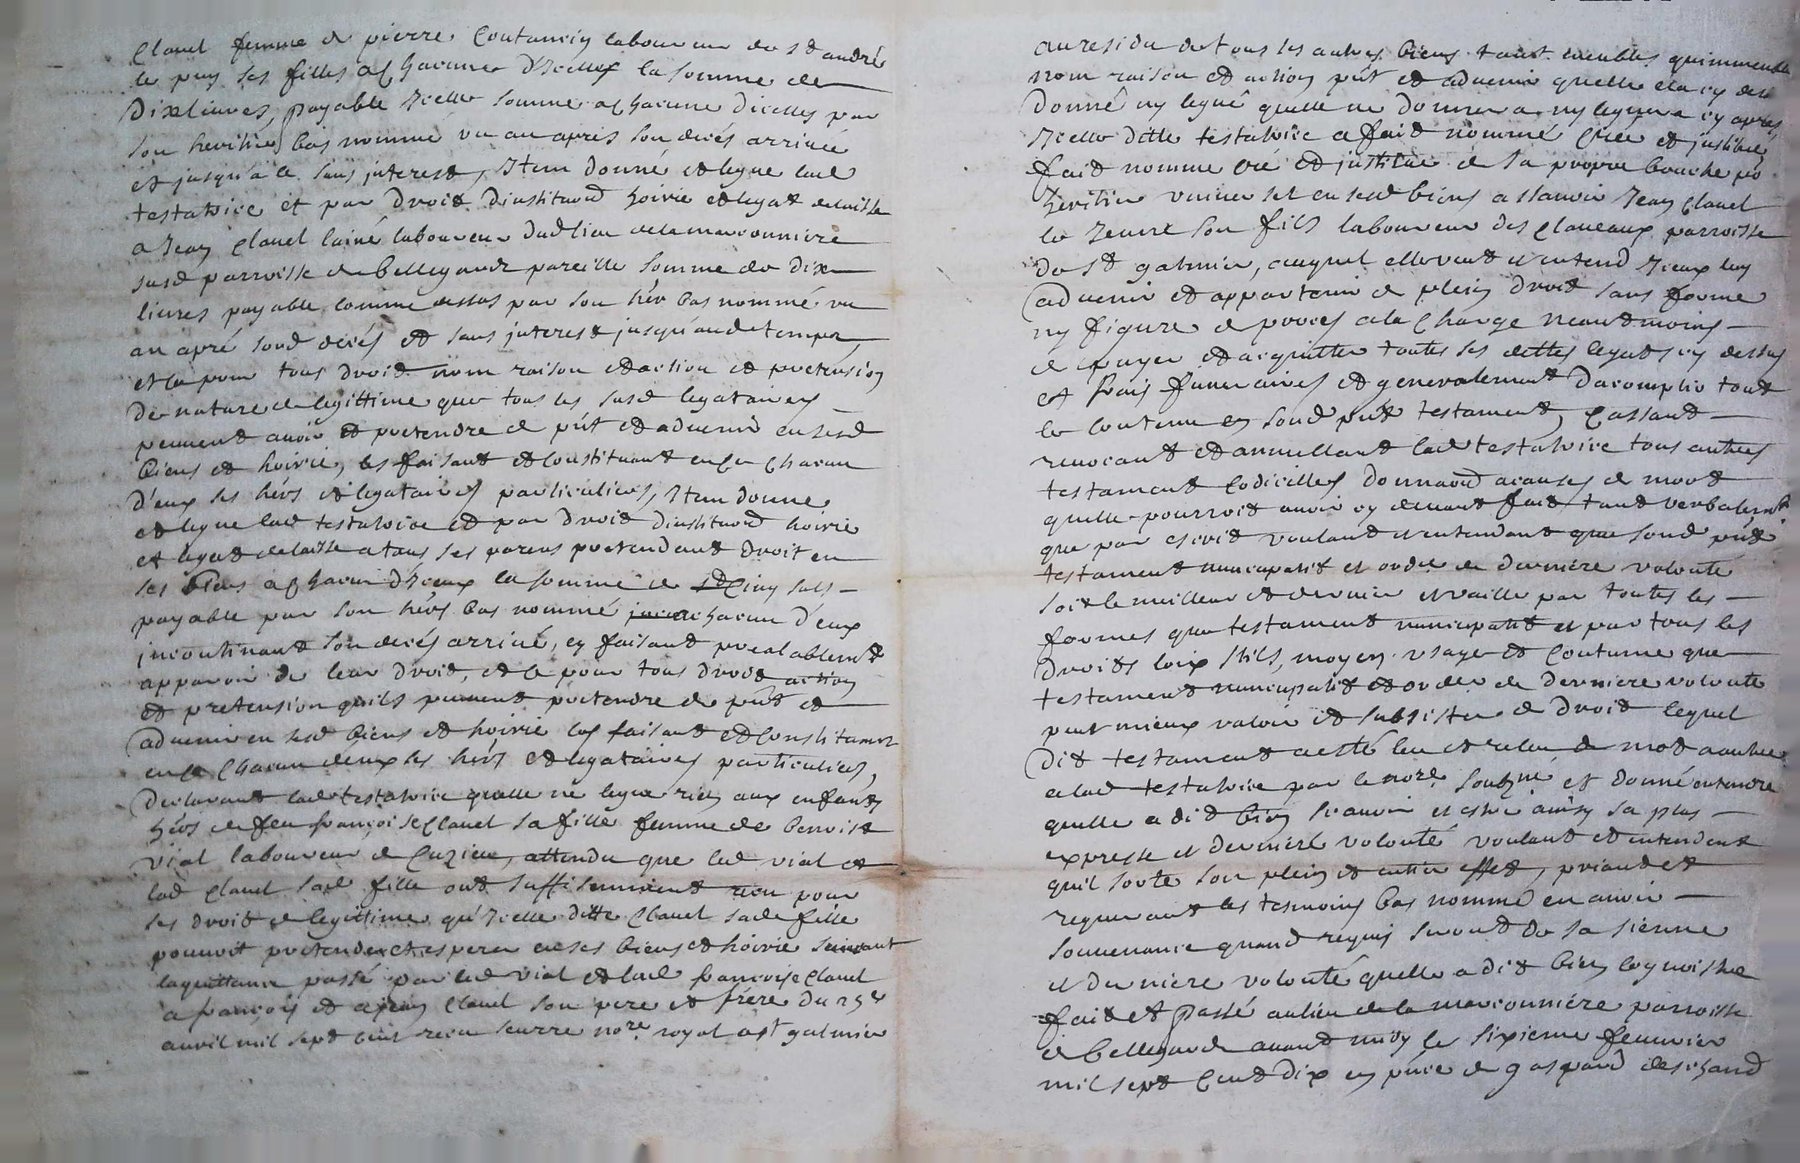 Clauel femme de pierre Coutancin laboureur de st andré
le puy ses filles a chacune d'Icelles la somme de
dix livres, payable Icelle somme a chacune dicelles par
son heritier bas nommé vn an apres son decés arrivée
et jusqu'a ce sans interest, Item donne et legue lad
testatrice et par droit d'institu[on]d hoirie et legat delaisse
a Jean Clauel laine laboureur dud lieu de la marconniere
susd parroisse de bellegarde pareille somme de dix
livres payable comme dessus par son hér bas nommé vn
an apré sond décés et sans interest jusqu'aud temps,
et ce pour tous droit nom raison et action et pretension
de nature de legittime que tous les susd legataires
peuuent auoir et pretendre de pnt et aduenir en sesd
biens et hoirie, les faisant et Constituant en ce chacun
d'eux ses hérs et legataires particuliers, Item donne
et legue lad testatrice et par droit d'institu[on]d hoirie
et legat delaisse a tous ses parens pretendant droit en
ses biens a chacun d'Iceux la somme de Cinq sols
payable par son hérs bas nommé a chacun d'eux
incontinant son decés arrivé, en faisant prealablemt
apparoir de leur droit, et ce pour tous droit action
et pretension quils peuuent pretendre de pnt et
aduenir en sesd biens et hoirie les faisant et Constituant
en ce Chacun deux ses hérs et legataires particuliers,
declarant lad testatrice quelle ne legue rien aux enfants
hérs de feu françoise Clauel sa fille femme de benoist
vial laboureur de Cuzieu, attendu que led vial et
lad Clauel sad fille ont suffisemment reçu pour
ses droit de legittime qu'Icelle ditte Clauel sade fille
pouuoit pretendre et esperer en ses biens et hoirie suivant
la quittance passé par led vial et lad françoise Clauel
a françois et a jean Clauel son pere et frere du 25e
auril mil sept cent reçu seurre nore royal a st galmier
au residu de tous les autres biens tant meubles quimmeubles
nom raison et action pnt et aduenir quelle ela cy des
donné ny legué quelle ne donnera ny leguera cy apres
Icelle ditte testatrice a fait nommé Créé et justitué
fait nomme cré et justitue de sa propre bouche po
heritier vniuersel en sesd biens a scauoir Jean Clauel
le Jeune son fils laboureur des Claueaux parroisse
de st galmier, auquel elle veut et entend Iceux luy
aduenir et appartenir de plein droit sans forme
ny figure de procés a la Charge neantmoins
de payer et acquitter toutes ses dettes legats cy dessus
et frais funeraires et generalement d'acomplir tout
le contenu en sond pnt testament, Cassant
reuocant et annullant lad testatrice tous autres
testament Codicilles donna[on]d a causes de mort
quelle pourroit auoir cy deuant fait tant verbalemt
que par escrit voulant et entendant que sond pnt
testament nuncupatif et ordre de derniere volonté
soit le meilleur et dernier et vaille par toutes les
formes que testament nuncupatif et par tous les
droits loix stils, moyen vsage et Coutume que
testament nuncupatif et ordre de derniere volonte
peut mieux valoir et subsister de droit lequel
dit testament a esté leu et releu de mot a autre
a lad testatrice par le nore soubzné et donné entendre
quelle a dit bien scauoir et estre ainsy sa plus
expresse et derniere volonté voulant et entendent
quil sorte son plein et entier effet, priant et
requerant les tesmoins bas nommé en auoir
souuenance quand requis seront de sa sienne
et derniere volonté quelle a dit bien cognoistre
fait et passé au lieu de la marconniere parroisse
de bellegarde auant midy le sixieme feuurier
mil sept Cent dix en pnce de gaspard deschand